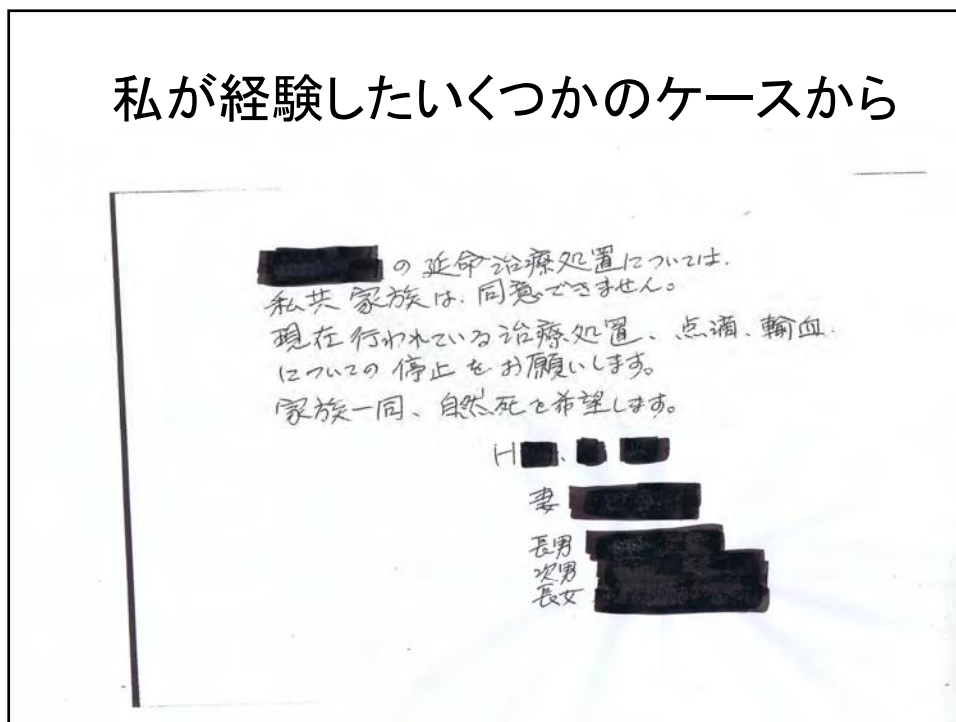 私が経験したいくつかのケースから
の延命治療処置については、
私共家族は、同意できません。
現在行われている治療処置、点滴、輸血
についての停止をお願いします。
家族一同、自然死を希望します。
H
妻
長男
次男
長女